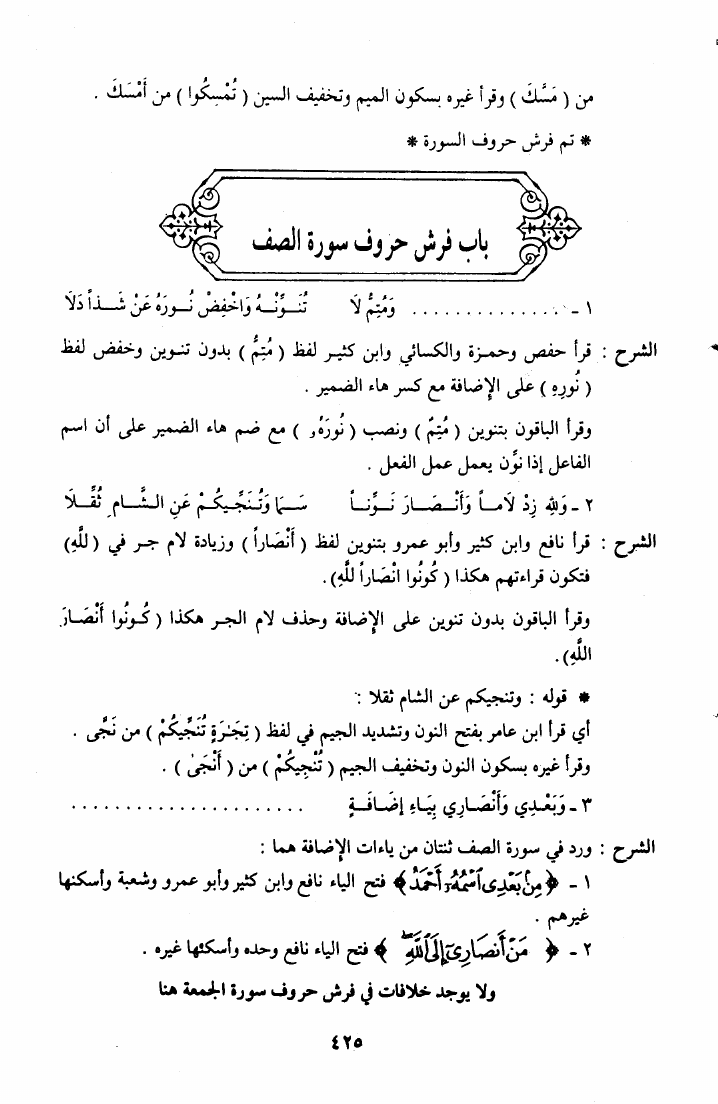 من ( مَسَّكَ ) وقرأ غيره بسكون الميم وتخفيف السين ( تُمْسِكُوا ) من أَمْسَكَ .
* تم فرش حروف السورة *
باب فرش حروف سورة الصف
١ - .............. وَمُتِمُّ لَا تُنَـوِّنْـهُ وَاخْفِضْ نُـورَهُ عَنْ شَـذاً دَلَا
الشرح : قرأ حفص وحمـزة والكسائي وابن كثير لفظ ( مُتِمُّ ) بدون تنـوين وخفض لفظ
( نُورِهِ ) على الإضافة مع كسر هاء الضمير .
وقرأ الباقون بتنوين ( مُتِمٌّ ) ونصب ( نُورَهُۥ ) مع ضم هاء الضمير على أن اسم
الفاعل إذا نوِّن يعمل عمل الفعل .
٢ - وَللهِ زِدْ لَامـاً وَأَنْـصَـارَ نَـوِّنـاً سَـمَا وَتُـنَـجِّـيكُـمْ عَنِ الـشَّـامِ ثُقِّـلَا
الشرح : قرأ نافع وابن كثير وأبو عمرو بتنوين لفظ ( أَنْصَاراً ) وزيادة لام جـر في ( للَّهِ )
فتكون قراءتهم هكذا ( كُونُوا انْصَاراً للَّهِ ) .
وقرأ الباقون بدون تنوين على الإضافة وحذف لام الجـر هكذا ( كُـونُوا أَنْصَـارَ
اللَّهِ ) .
* قوله : وتنجيكم عن الشام ثقلا :
أي قرأ ابن عامر بفتح النون وتشديد الجيم في لفظ ( تِجَـٰرَةٍ تُنَجِّيكُمْ ) من نَجَّى .
وقرأ غيره بسكون النون وتخفيف الجيم ( تُنْجِيكُمْ ) من ( أَنْجَىٰ ) .
٣ - وَبَعْـدِي وَأَنْصَارِي بِيَـاءِ إِضَافَـةٍ ......................
الشرح : ورد في سورة الصف ثنتان من ياءات الإضافة هما :
١ - ﴿ مِنۢ بَعْدِى ٱسْمُهُۥٓ أَحْمَدُ ﴾ فتح الياء نافع وابن كثير وأبو عمرو وشعبة وأسكنها
غيرهم .
٢ - ﴿ مَنْ أَنصَارِىٓ إِلَى ٱللَّهِ ﴾ فتح الياء نافع وحده وأسكنها غيره .
ولا يوجد خلافات في فرش حروف سورة الجمعة هنا
٤٢٥